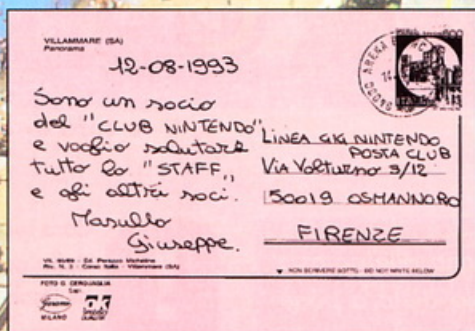 VILLAMMARE (SA)
Panorama
12-08-1993
Sono un socio
del "CLUB NINTENDO"
e voglio salutare
tutto lo "STAFF"
e gli altri soci.
Masullo
Giuseppe.
LINEA GIG NINTENDO
POSTA CLUB
Via Volturno 3/12
50019 OSMANNORO
FIRENZE
NON SCRIVERE SOTTO - DO NOT WRITE BELOW
FOTO G. CERQUAGLIA
Sapri
MILANO
ok